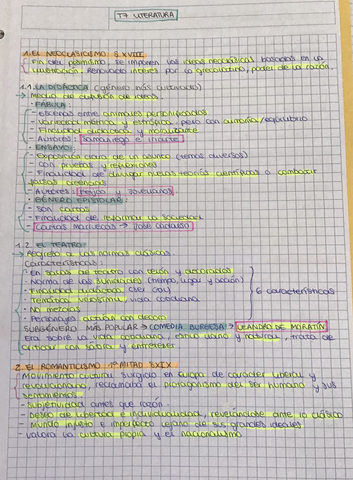 T7 LITERATURA
1. EL NEOCLASICISMO S.XVIII
Fin del pesimismo. Se imponen las ideas neoclásicas basadas en la
ilustración. Renovado interés por lo grecolatino, poder de la razón.
1.1. LA DIDÁCTICA (género más cultivado)
→ Medio de difusión de ideas.
· FÁBULA:
- Escenas entre animales personificados
- Variedad métrica y estrófica, pero con armonía/equilibrio
- Finalidad didáctica y moralizante
- Autores: Samaniego e Iriarte
· ENSAYO:
- Exposición clara de un asunto (temas diversos)
con pruebas y reflexiones
- Finalidad de divulgar nuevas teorías científicas o combatir
falsas creencias
- Autores: Feijoo y Jovellanos
· GÉNERO EPISTOLAR:
- Son cartas
- Finalidad de reformar la sociedad
- Cartas marruecas → José Cadalso
1.2. EL TEATRO
→ Regreso a las normas clásicas.
Características:
- En salas de teatro con telón y decorados
- Norma de las 3 unidades (tiempo, lugar y acción)
- Finalidad didáctica
- Temática verosímil, vida cotidiana
- No mezclas
- Personajes actúan con decoro
6 características
SUBGÉNERO MÁS POPULAR → COMEDIA BURGESA → LEANDRO DE MORATÍN
Era sobre la vida cotidiana, estilo llano y natural, trata de
criticar con sátira y entretener.
2. EL ROMANTICISMO 1ª MITAD S.XIX
Movimiento cultural surgido en Europa de carácter liberal y
revolucionario, reclamaba el protagonismo del ser humano y sus
sentimientos.
- Subjetividad antes que razón.
- Deseo de libertad e individualidad, revelándose ante lo clásico
- Mundo injusto e imperfecto lejano de sus grandes ideales
- Valora la cultura propia y el nacionalismo